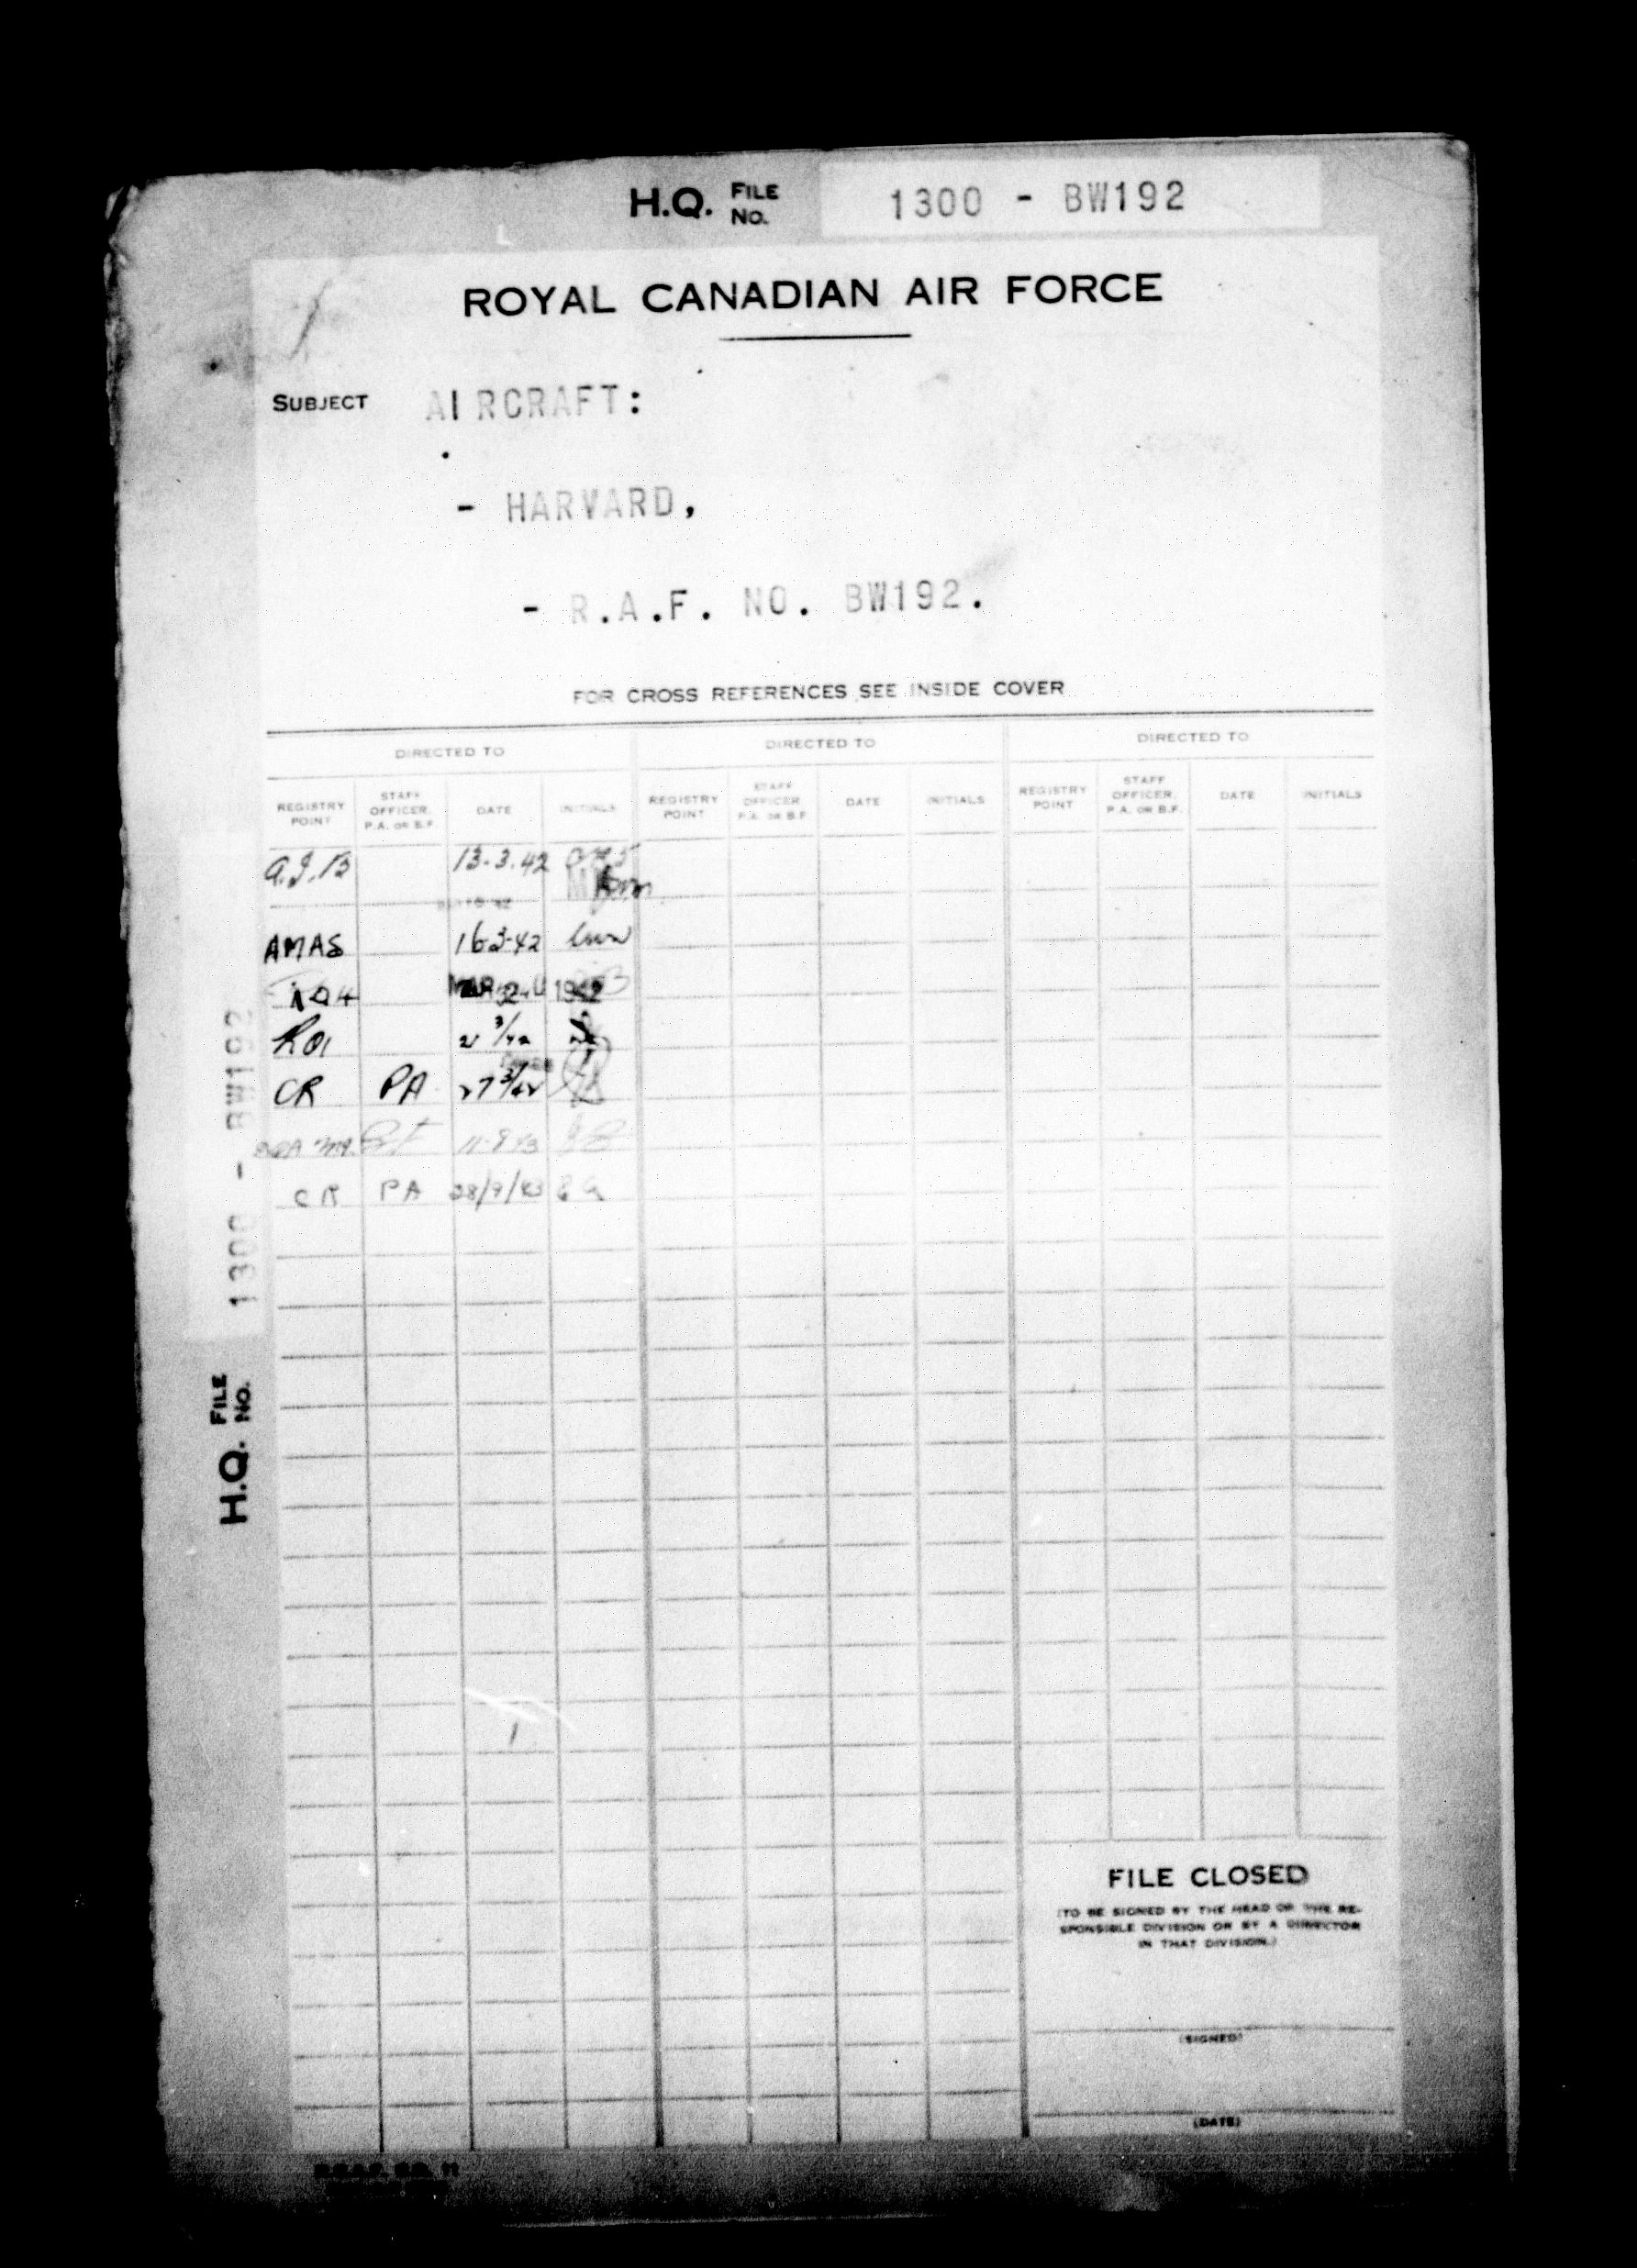 H.Q. FILE NO. 1300 - BW192
ROYAL CANADIAN AIR FORCE
SUBJECT AIRCRAFT:
- HARVARD,
- R.A.F. NO. BW192.
FOR CROSS REFERENCES SEE INSIDE COVER
DIRECTED TO DIRECTED TO DIRECTED TO
REGISTRY POINT STAFF OFFICER, P.A. OR B.F. DATE INITIALS REGISTRY POINT STAFF OFFICER P.A. OR B.F. DATE INITIALS REGISTRY POINT STAFF OFFICER, P.A. OR B.F. DATE INITIALS
13-3-42
AMAS 16-3-42
MAR 1942
CR PA 27 3/42
11-8-43
CR PA 28/9/43
H.Q. FILE NO. 1300 - BW192
FILE CLOSED
(TO BE SIGNED BY THE HEAD OF THE RE-
SPONSIBLE DIVISION OR BY A DIRECTOR
IN THAT DIVISION.)
(SIGNED)
(DATE)